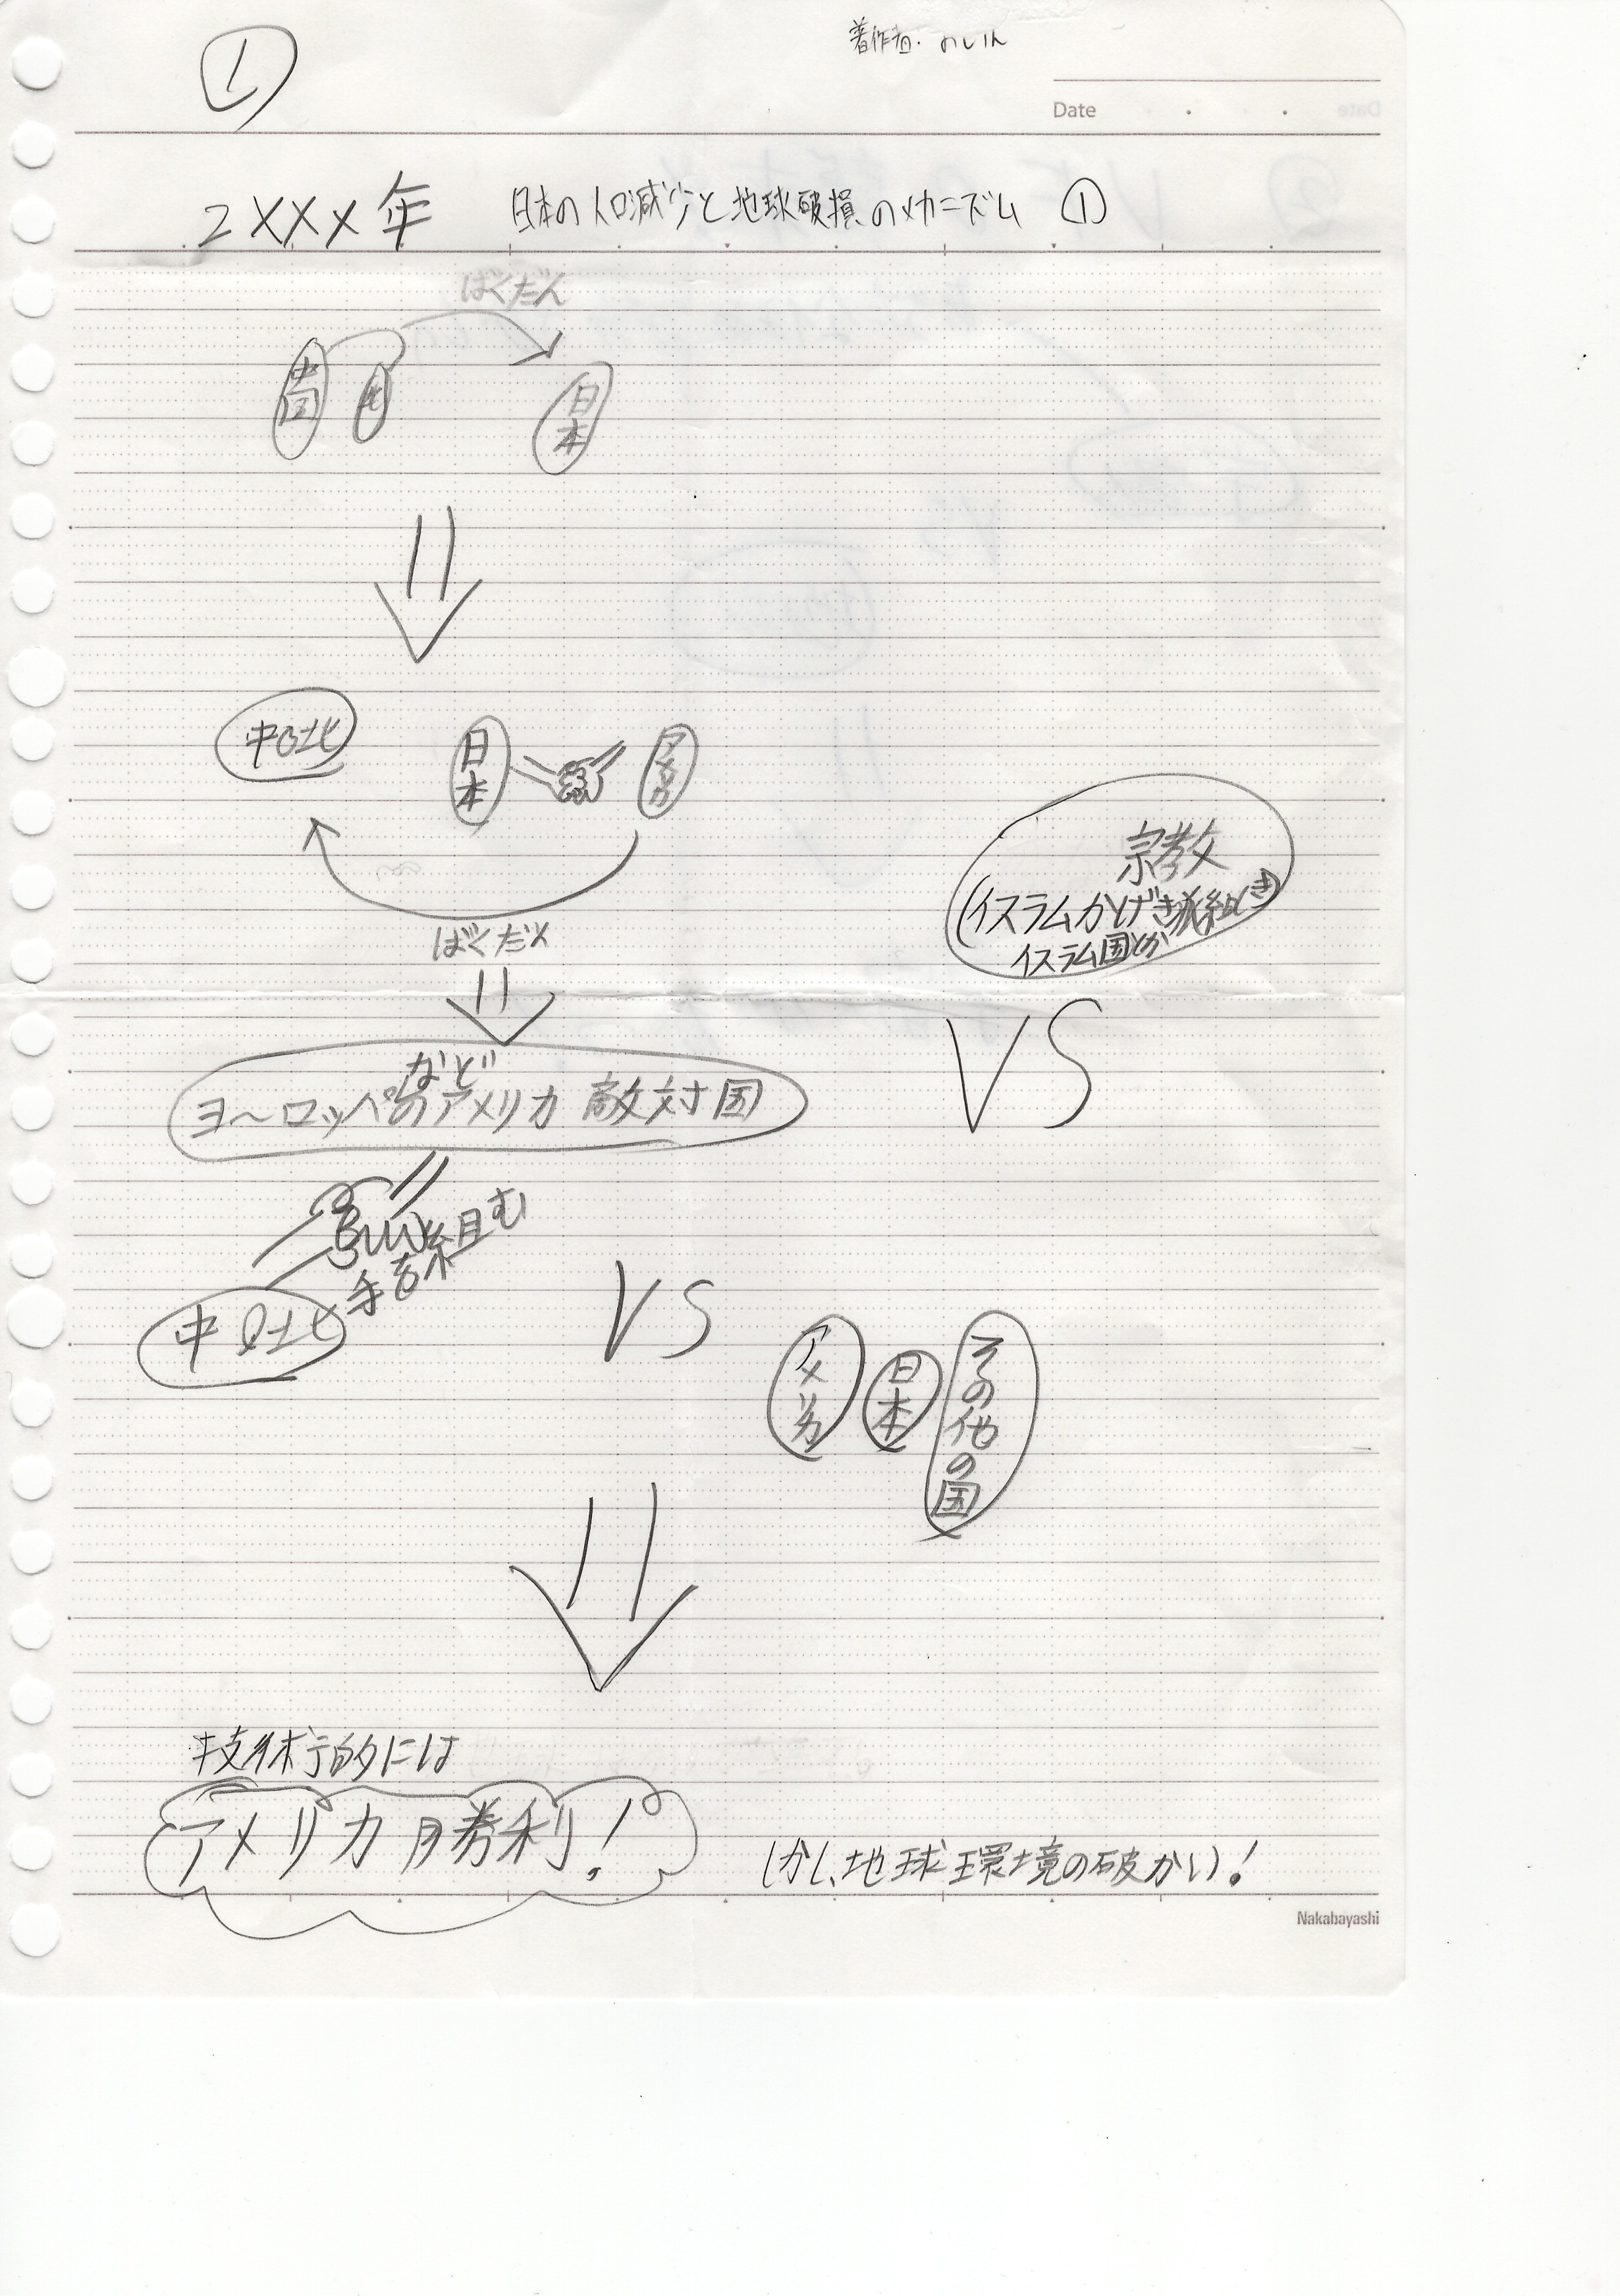 ①
著作者.
Date
2XXX年 日本の人口減少と地球破損のメカニズム ①
ばくだん
中国
北
日本
中 北
日本
アメリカ
ばくだん
宗教
(イスラムかげき派組しき)
イスラム国とか
VS
など
ヨーロッパのアメリカ敵対国
手を組む
中 北
VS
アメリカ
日本
その他の国
技術的には
アメリカ勝利!
しかし、地球環境の破かい!
Nakabayashi